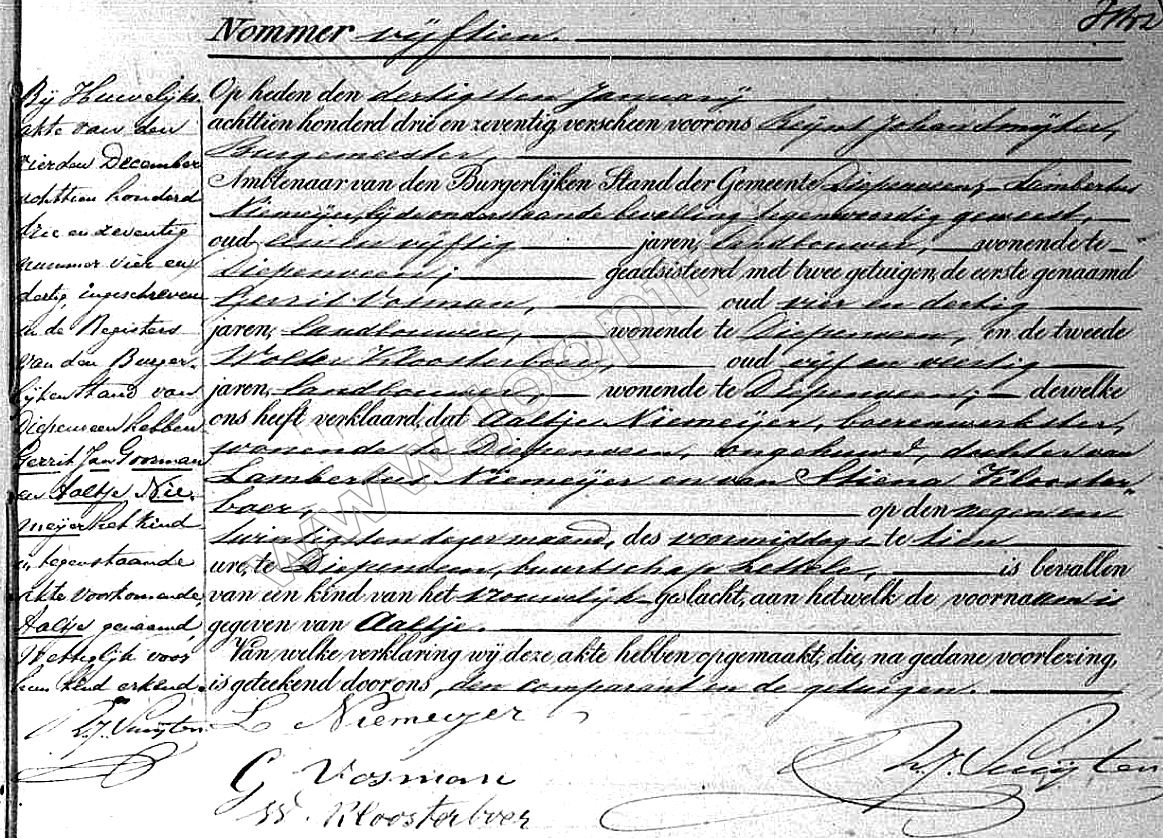 Nommer vijftien.
Op heden den dertigsten Januarij
achttien honderd drie en zeventig, verscheen voor ons Reijnt Johan Smijter,
Burgemeester,
Ambtenaar van den Burgerlijken Stand der Gemeente Diepenveen, Lambertus
Niemeijer, bij de onderstaande bevalling tegenwoordig geweest,
oud een en vijftig jaren, landbouwer, wonende te
Diepenveen, geadsisteerd met twee getuigen, de eerste genaamd
Gerrit Vosman, oud vier en dertig
jaren, landbouwer, wonende te Diepenveen, en de tweede
Wolter Kloosterboer, oud vijf en veertig
jaren, landbouwer, wonende te Diepenveen, dewelke
ons heeft verklaard, dat Aaltje Niemeijer, boerenwerkster,
wonende te Diepenveen, ongehuwd, dochter van
Lambertus Niemeijer en van Stiena Klooster-
boer, op den negen en
twintigsten dezer maand, des voormiddags te tien
ure, te Diepenveen, buurtschap Lettele, is bevallen
van een kind van het vrouwelijk geslacht, aan hetwelk de voornaam is
gegeven van Aaltje.
Van welke verklaring wij deze akte hebben opgemaakt, die, na gedane voorlezing,
is geteekend door ons, den comparant en de getuigen.
L Niemeijer
G Vosman
W Kloosterboer
Bij Huwelijks
akte van den
vierden December
achttien honderd
drie en zeventig
nummer vier en
dertig, ingeschreven
in de Registers
van den Burger-
lijken Stand van
Diepenveen hebben
Gerrit Jan Goosman
en Aaltje Nie-
meijer het kind
in tegenstaande
akte voorkomende,
Aaltje genaamd,
Wettiglijk voor
hun kind erkend.